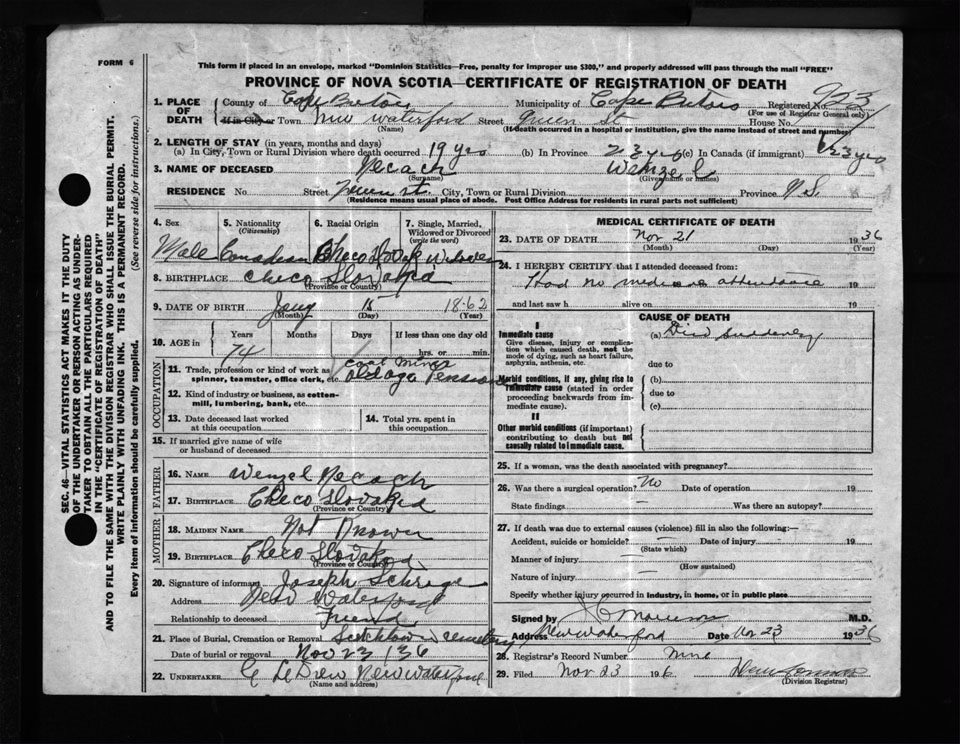 FORM 6
This form if placed in an envelope, marked "Dominion Statistics—Free, penalty for improper use $300," and properly addressed will pass through the mail "FREE"
PROVINCE OF NOVA SCOTIA—CERTIFICATE OF REGISTRATION OF DEATH
923
1. PLACE OF DEATH
County of Cape Breton Municipality of Cape Breton Registered No.
(For use of Registrar General only)
If in City or Town New Waterford Street Green St House No.
(Name) (If death occurred in a hospital or institution, give the name instead of street and number)
2. LENGTH OF STAY (in years, months and days)
(a) In City, Town or Rural Division where death occurred 19 yrs (b) In Province 23 yrs (c) In Canada (if immigrant) 23 yrs
3. NAME OF DECEASED Necach Wenzel
(Surname) (Given name or names)
RESIDENCE No. Street Green St. City, Town or Rural Division Province N.S.
(Residence means usual place of abode. Post Office Address for residents in rural parts not sufficient)
4. Sex 5. Nationality (Citizenship) 6. Racial Origin 7. Single, Married, Widowed or Divorced (write the word)
Male Canadian Checo Slovak Widower
8. BIRTHPLACE Checo Slovakia
(Province or Country)
9. DATE OF BIRTH Jany 15 1862
(Month) (Day) (Year)
10. AGE in Years Months Days If less than one day old
74 hrs. or min.
OCCUPATION
11. Trade, profession or kind of work as spinner, teamster, office clerk, etc. Coal Miner
Old age Pension
12. Kind of industry or business, as cotton-mill, lumbering, bank, etc.
13. Date deceased last worked at this occupation
14. Total yrs. spent in this occupation
15. If married give name of wife or husband of deceased
FATHER
16. NAME Wenzel Necach
17. BIRTHPLACE Checo Slovakia
(Province or Country)
MOTHER
18. MAIDEN NAME Not Known
19. BIRTHPLACE Checo Slovakia
(Province or Country)
20. Signature of informant Joseph
Address New Waterford
Relationship to deceased Friend
21. Place of Burial, Cremation or Removal cemetery
Date of burial or removal Nov 23 / 36
22. UNDERTAKER G LeDrew New Waterford
(Name and address)
MEDICAL CERTIFICATE OF DEATH
23. DATE OF DEATH Nov 21 1936
(Month) (Day) (Year)
24. I HEREBY CERTIFY that I attended deceased from:
Had no medical attendance 19
and last saw h alive on 19
CAUSE OF DEATH
I
Immediate cause
Give disease, injury or complication which caused death, not the mode of dying, such as heart failure, asphyxia, asthenia, etc.
(a) Died suddenly
due to
Morbid conditions, if any, giving rise to immediate cause (stated in order proceeding backwards from immediate cause).
(b)
due to
(c)
II
Other morbid conditions (if important) contributing to death but not causally related to immediate cause.
25. If a woman, was the death associated with pregnancy?
26. Was there a surgical operation? No Date of operation 19
State findings — Was there an autopsy?
27. If death was due to external causes (violence) fill in also the following:—
Accident, suicide or homicide? — Date of injury — 19
(State which)
Manner of injury —
(How sustained)
Nature of injury —
Specify whether injury occurred in industry, in home, or in public place
Signed by M.D.
Address New Waterford Date Nov 23 1936
28. Registrar's Record Number Nine
29. Filed Nov 23 1936
(Division Registrar)
SEC. 46—VITAL STATISTICS ACT MAKES IT THE DUTY
OF THE UNDERTAKER OR PERSON ACTING AS UNDER-
TAKER TO OBTAIN ALL THE PARTICULARS REQUIRED
IN THE "CERTIFICATE OF REGISTRATION OF DEATH"
AND TO FILE THE SAME WITH THE DIVISION REGISTRAR WHO SHALL ISSUE THE BURIAL PERMIT.
WRITE PLAINLY WITH UNFADING INK. THIS IS A PERMANENT RECORD.
Every item of information should be carefully supplied. (See reverse side for instructions.)